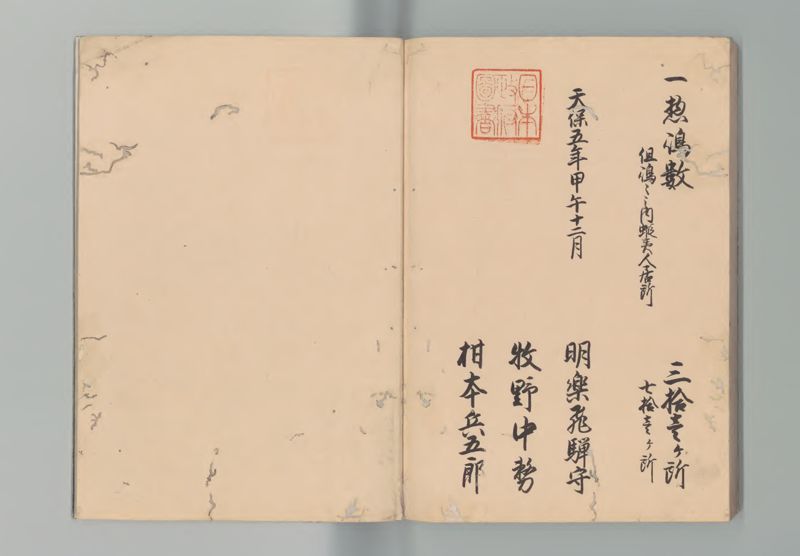 一惣嶋数 三拾壱ケ所
但嶋之内蝦夷人居所 七拾壱ケ所
天保五年甲午十二月
明楽飛騨守
牧野中務
柑本兵五郎
日本
政府
圖書